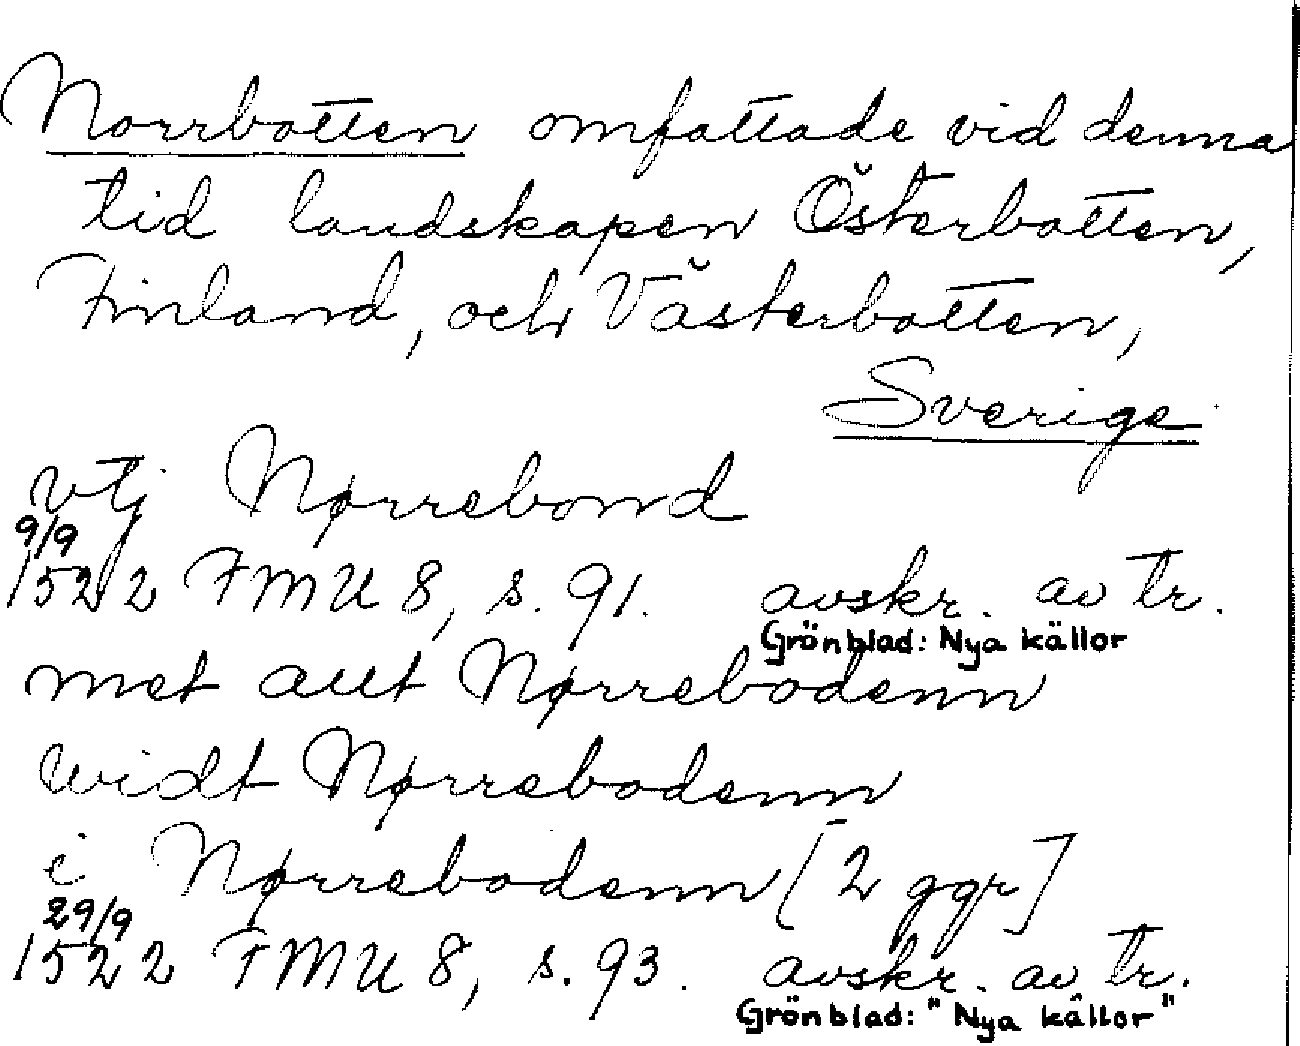 Norrbotten omfattade vid denna
tid landskapen Österbotten,
Finland, och Västerbotten,
Sverige
vtj Nørrebond
9/9
1522 FMU 8, s. 91. avskr. av tr.
Grönblad: Nya källor
met aut Nørrebodenn
widt Nørrebodenn
i Nørrebodenn [2 ggr]
29/9
1522 FMU 8, s. 93. avskr. av tr.
Grönblad: "Nya källor"